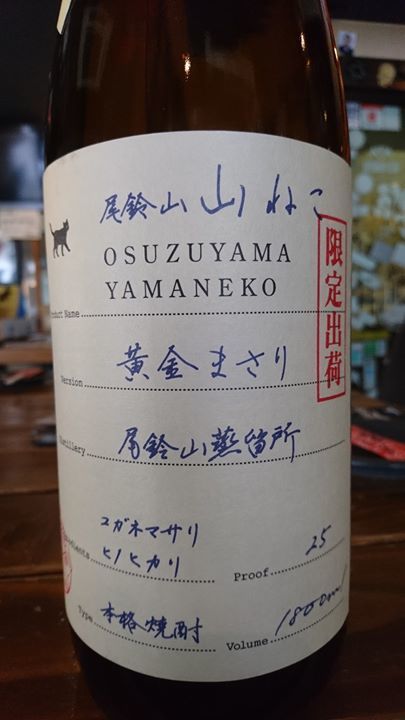 尾鈴山 山ねこ
OSUZUYAMA
YAMANEKO
Product Name
限定出荷
黄金まさり
Version
尾鈴山蒸留所
Distillery
コガネマサリ
ヒノヒカリ
Ingredients
Proof 25
Type 本格焼酎
Volume 1800ml